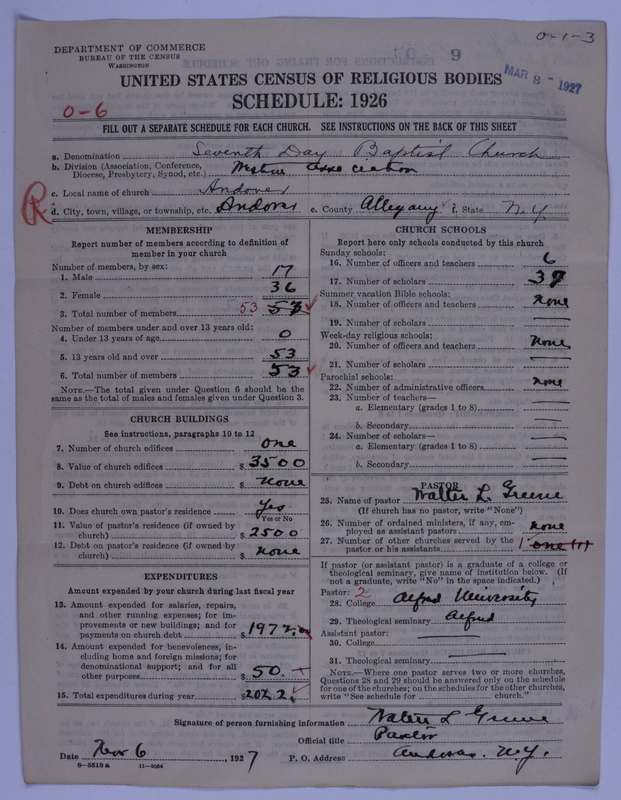 0-1-3
DEPARTMENT OF COMMERCE
BUREAU OF THE CENSUS
WASHINGTON
MAR 8 - 1927
UNITED STATES CENSUS OF RELIGIOUS BODIES
SCHEDULE: 1926
0-6
FILL OUT A SEPARATE SCHEDULE FOR EACH CHURCH. SEE INSTRUCTIONS ON THE BACK OF THIS SHEET
a. Denomination Seventh Day Baptist Church
b. Division (Association, Conference, Diocese, Presbytery, Synod, etc.) Western Association
R
c. Local name of church Andover
d. City, town, village, or township, etc. Andover e. County Allegany f. State N.Y.
MEMBERSHIP
Report number of members according to definition of
member in your church
Number of members, by sex:
1. Male 17
2. Female 36
3. Total number of members 53 53
Number of members under and over 13 years old:
4. Under 13 years of age 0
5. 13 years old and over 53
6. Total number of members 53
NOTE.—The total given under Question 6 should be
same as the total of males and females given under Question 3.
CHURCH BUILDINGS
See instructions, paragraphs 10 to 12
7. Number of church edifices one
8. Value of church edifices $ 3500
9. Debt on church edifices $ none
10. Does church own pastor's residence Yes
Yes or No
11. Value of pastor's residence (if owned by
church) $ 2500
12. Debt on pastor's residence (if owned by
church) $ none
EXPENDITURES
Amount expended by your church during last fiscal year
13. Amount expended for salaries, repairs,
and other running expenses; for im-
provements or new buildings; and for
payments on church debt $ 1972.
14. Amount expended for benevolences, in-
cluding home and foreign missions; for
denominational support; and for all
other purposes $ 50.
15. Total expenditures during year $ 2022.
CHURCH SCHOOLS
Report here only schools conducted by this church
Sunday schools:
16. Number of officers and teachers 6
17. Number of scholars 39
Summer vacation Bible schools:
18. Number of officers and teachers none
19. Number of scholars
Week-day religious schools:
20. Number of officers and teachers none
21. Number of scholars
Parochial schools:
22. Number of administrative officers none
23. Number of teachers—
a. Elementary (grades 1 to 8)
b. Secondary
24. Number of scholars—
a. Elementary (grades 1 to 8)
b. Secondary
PASTOR
25. Name of pastor Walter L. Greene
(If church has no pastor, write "None")
26. Number of ordained ministers, if any, em-
ployed as assistant pastors none
27. Number of other churches served by the
pastor or his assistants 1 one (1)
If pastor (or assistant pastor) is a graduate of a college or
theological seminary, give name of institution below. (If
not a graduate, write "No" in the space indicated.)
Pastor: 2
28. College Alfred University
29. Theological seminary Alfred
Assistant pastor:
30. College
31. Theological seminary
NOTE.—Where one pastor serves two or more churches,
Questions 28 and 29 should be answered only on the schedule
for one of the churches; on the schedules for the other churches,
write "See schedule for church."
Signature of person furnishing information Walter L Greene
Official title Pastor
Date Mar 6, 1927 P. O. Address Andover. N.Y.
8-5513a 11-9084